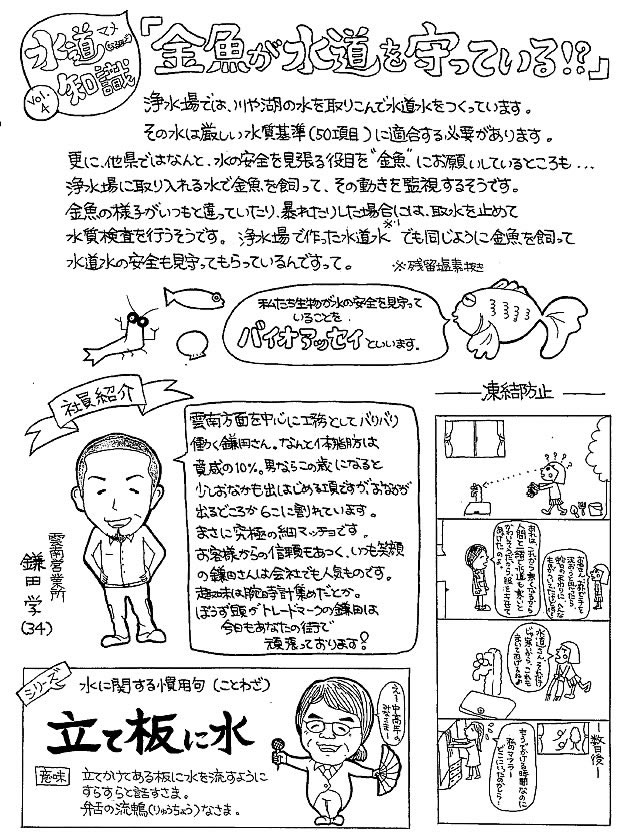 水道マメ知識
Vol.4
「金魚が水道を守っている!?」
浄水場では、川や湖の水を取りこんで水道水をつくっています。
その水は厳しい水質基準(50項目)に適合する必要があります。
更に、他県ではなんと、水の安全を見張る役目を"金魚"にお願いしているところも...
浄水場に取り入れる水で金魚を飼って、その動きを監視するそうです。
金魚の様子がいつもと違っていたり、暴れたりした場合には、取水を止めて
水質検査を行うそうです。浄水場で作った水道水※1でも同じように金魚を飼って
水道水の安全も見守ってもらっているんですって。
※残留塩素抜き
私たち生物が水の安全を見守って
いることを
バイオアッセイといいます。
社員紹介
雲南営業所
鎌田 学
(34)
雲南方面を中心に工務としてバリバリ
働く鎌田さん。なんと体脂肪は
驚威の10%。男ならこの歳になると
少しおなかも出はじめる頃ですが、おなかが
出るどころか6こに割れています。
まさに究極の細マッチョです。
お客様からの信頼もあつく、いつも笑顔
の鎌田さんは会社でも人気ものです。
趣味は腕時計集めだとか。
ぼうず頭がトレードマークの鎌田は
今日もあなたの街で
頑張っております!
凍結防止
???
お母さん、なんで
水道さんに
あれは
人間と一緒で水道も寒いと
水道さん、これも
まいてあげるね♪
数日後
もうでかける時間なのに
私のマフラー
どこいったのかしら…
シリーズ
水に関する慣用句(ことわざ)
立て板に水
意味
立てかけてある板に水を流すように
すらすらと話すさま。
弁舌の流鴨(りゅうちょう)なさま。
え~中高年の
みなさま…